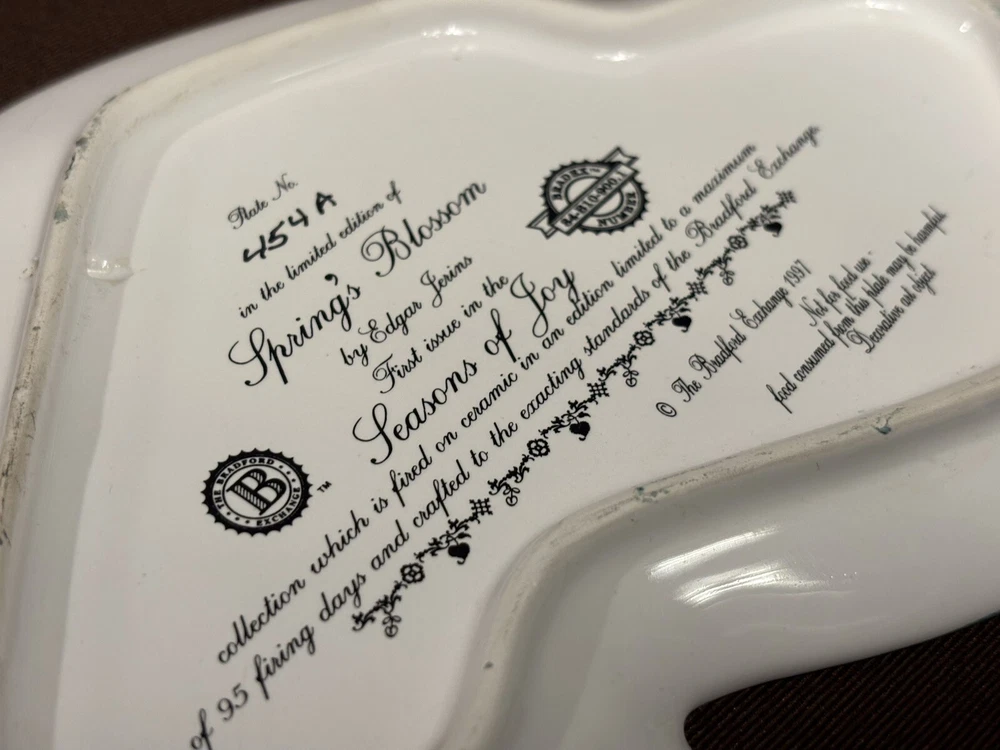 Plate No.
454A
in the limited edition of
Spring's Blossom
by Edgar Jerins
First issue in the
Seasons of Joy
collection which is fired on ceramic in an edition limited to a maximum
of 95 firing days and crafted to the exacting standards of the Bradford Exchange
BRADEX
84-B10-900.1
THE BRADFORD
B
EXCHANGE
TM
© The Bradford Exchange 1997
Not for food use -
food consumed from this plate may be harmful
Decorative art object